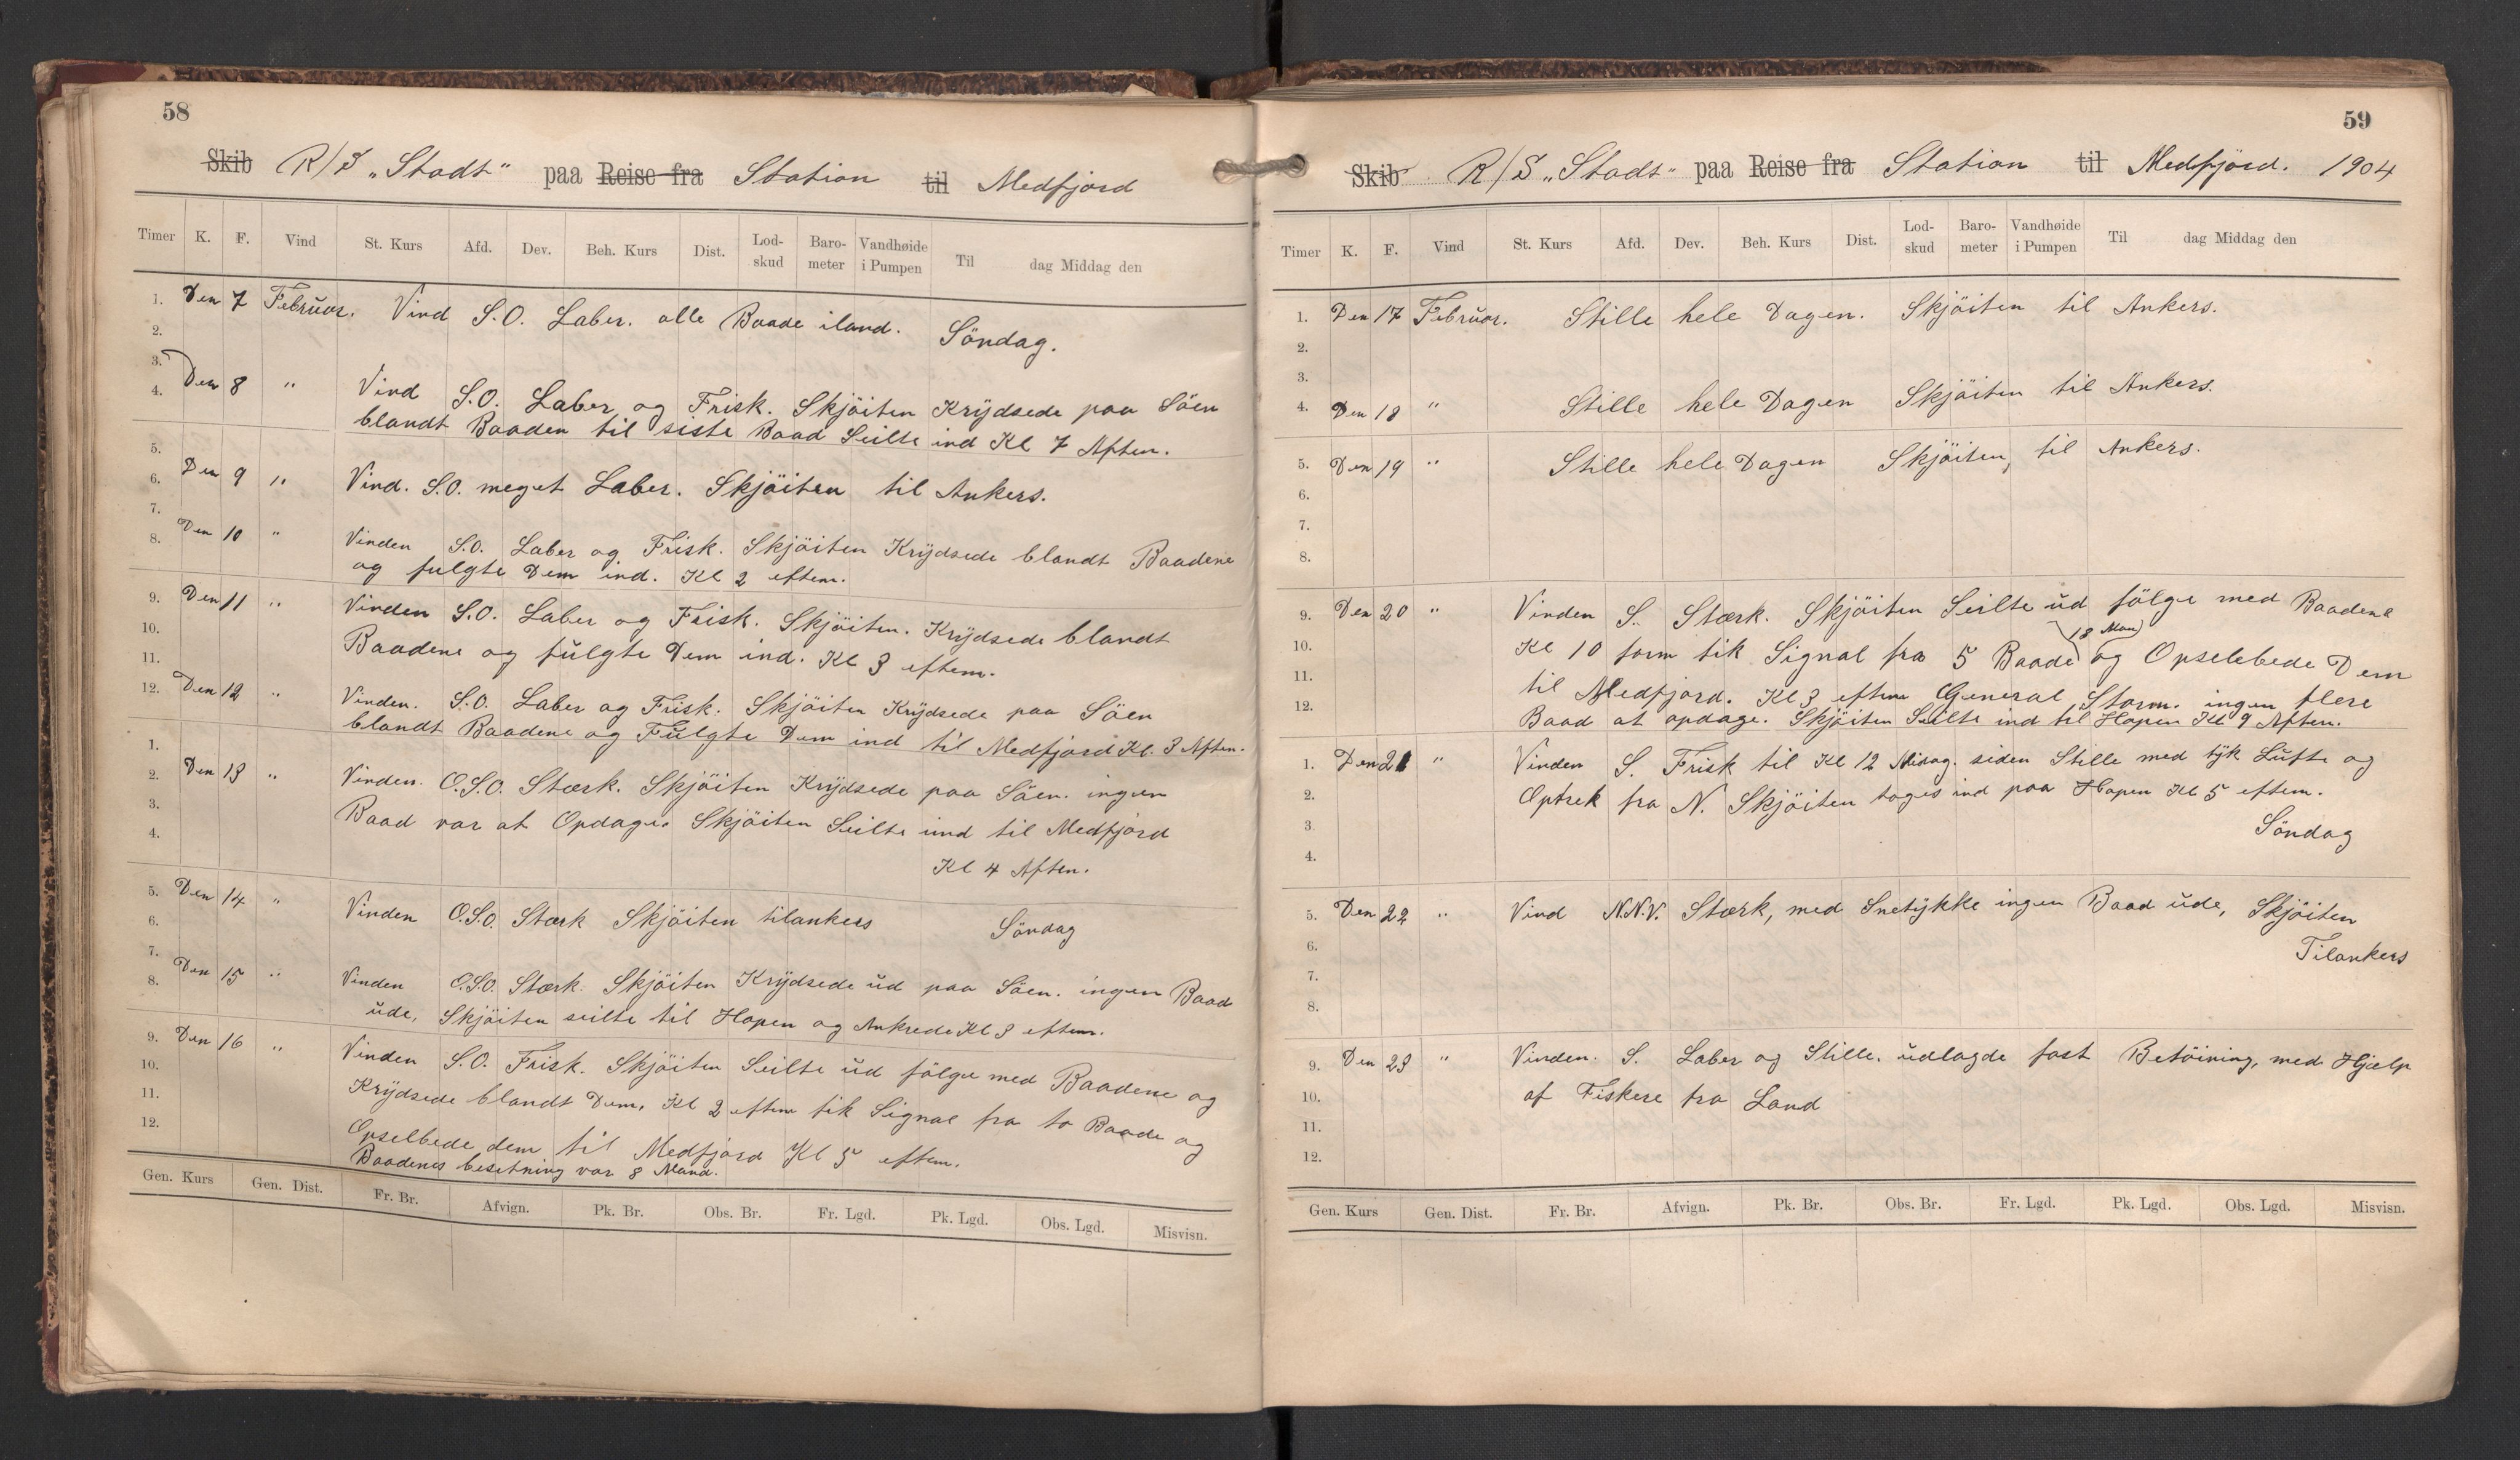 58
Skib R/S „Stadt" paa Reise fra Station til Medfjord
Timer K. F. Vind St. Kurs Afd. Dev. Beh. Kurs Dist. Lod-skud Baro-meter Vandhøide i Pumpen Til dag Middag den
1. Den 7 Februar. Vind S.O. Laber. alle Baade iland.
2. Söndag.
3.
4. Den 8 " Vind S.O. Laber og Frisk. Skjöiten Krÿdsede paa Söen
blandt Baaden til siste Baad Seilte ind Kl 7 Aften.
5.
6. Den 9 " Vind. S.O. meget Laber. Skjöiten til Ankers.
7.
8. Den 10 " Vinden S.O. Laber og Frisk. Skjöiten Krÿdsede blandt Baadene
og fulgte Dem ind. Kl 2 eftem.
9. Den 11 " Vinden S.O. Laber og Frisk. Skjöiten. Krÿdsede blandt
10. Baadene og fulgte Dem ind. Kl 3 eftem.
11.
12. Den 12 " Vinden. S.O. Laber og Frisk. Skjöiten Krÿdsede paa Söen
blandt Baadene og Fulgte Dem ind til Medfjord Kl. 3 Aften.
1.
2. Den 13 " Vinden. O.S.O. Stærk. Skjöiten Krÿdsede paa Söen. ingen
3. Baad var at Opdage. Skjöiten Seilte ind til Medfjord
4. Kl 4 Aften.
5. Den 14 " Vinden O.S.O. Stærk Skjöiten tilankers
6. Söndag
7.
8. Den 15 " Vinden O.S.O. Stærk. Skjöiten Krÿdsede ud paa Söen. ingen Baad
ude, Skjöiten seilte til Hopen og Ankrede Kl 3 eftem.
9. Den 16 " Vinden S.O. Frisk. Skjöiten Seilte ud fölge med Baadene og
10. Krÿdsede blandt Dem. Kl 2 eftem fik Signal fra to Baade og
11. Opselbede dem til Medfjord Kl 5 eftem.
12. Baadenes besetning var 8 Mand.
Gen. Kurs Gen. Dist. Fr. Br. Afvign. Pk. Br. Obs. Br. Fr. Lgd. Pk. Lgd. Obs. Lgd. Misvisn.
59
Skib R/S „Stadt" paa Reise fra Station til Medfjord. 1904
Timer K. F. Vind St. Kurs Afd. Dev. Beh. Kurs Dist. Lod-skud Baro-meter Vandhøide i Pumpen Til dag Middag den
1. Den 17 Februar. Stille hele Dagen. Skjöiten til Ankers.
2.
3.
4. Den 18 " Stille hele Dagen Skjöiten til Ankers.
5. Den 19 " Stille hele Dagen Skjöiten, til Ankers.
6.
7.
8.
9. Den 20 " Vinden S. Stærk. Skjöiten Seilte ud fölge med Baadene
18 Man
10. Kl 10 form fik Signal fra 5 Baade og Opselebede Dem
11. til Medfjord. Kl 3 eftem General Storm. ingen flere
12. Baad at opdage. Skjöiten Seilte ind til Hopen Kl 9 Aften.
1. Den 21 " Vinden S. Frisk til Kl 12 Midag. siden Stille med tÿk Lufte og
2. Optrek fra N. Skjöiten toges ind paa Hopen Kl 5 eftem.
3. Söndag
4.
5. Den 22 " Vind N.N.V. Stærk, med Snetÿkke ingen Baad ude, Skjöiten
6. Tilankers
7.
8.
9. Den 23 " Vinden. S. Laber og Stille. udlagde fast Betöining, med Hjælp
10. af Fiskere fra Land
11.
12.
Gen. Kurs Gen. Dist. Fr. Br. Afvign. Pk. Br. Obs. Br. Fr. Lgd. Pk. Lgd. Obs. Lgd. Misvisn.